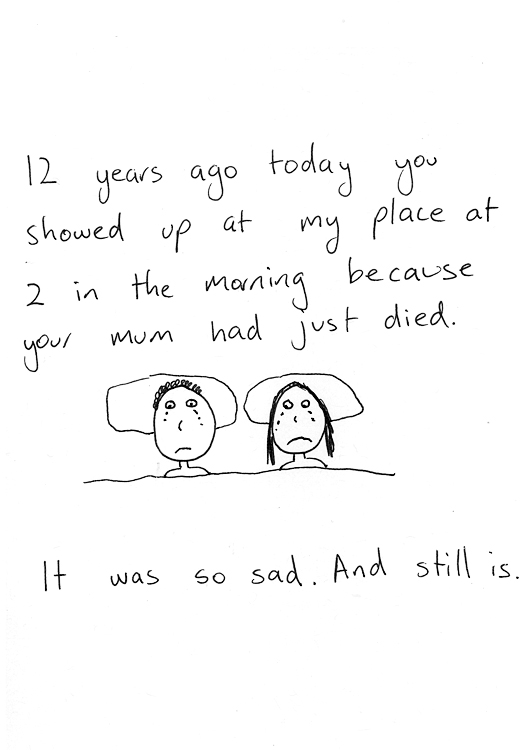 12 years ago today you
showed up at my place at
2 in the morning because
your mum had just died.
It was so sad. And still is.